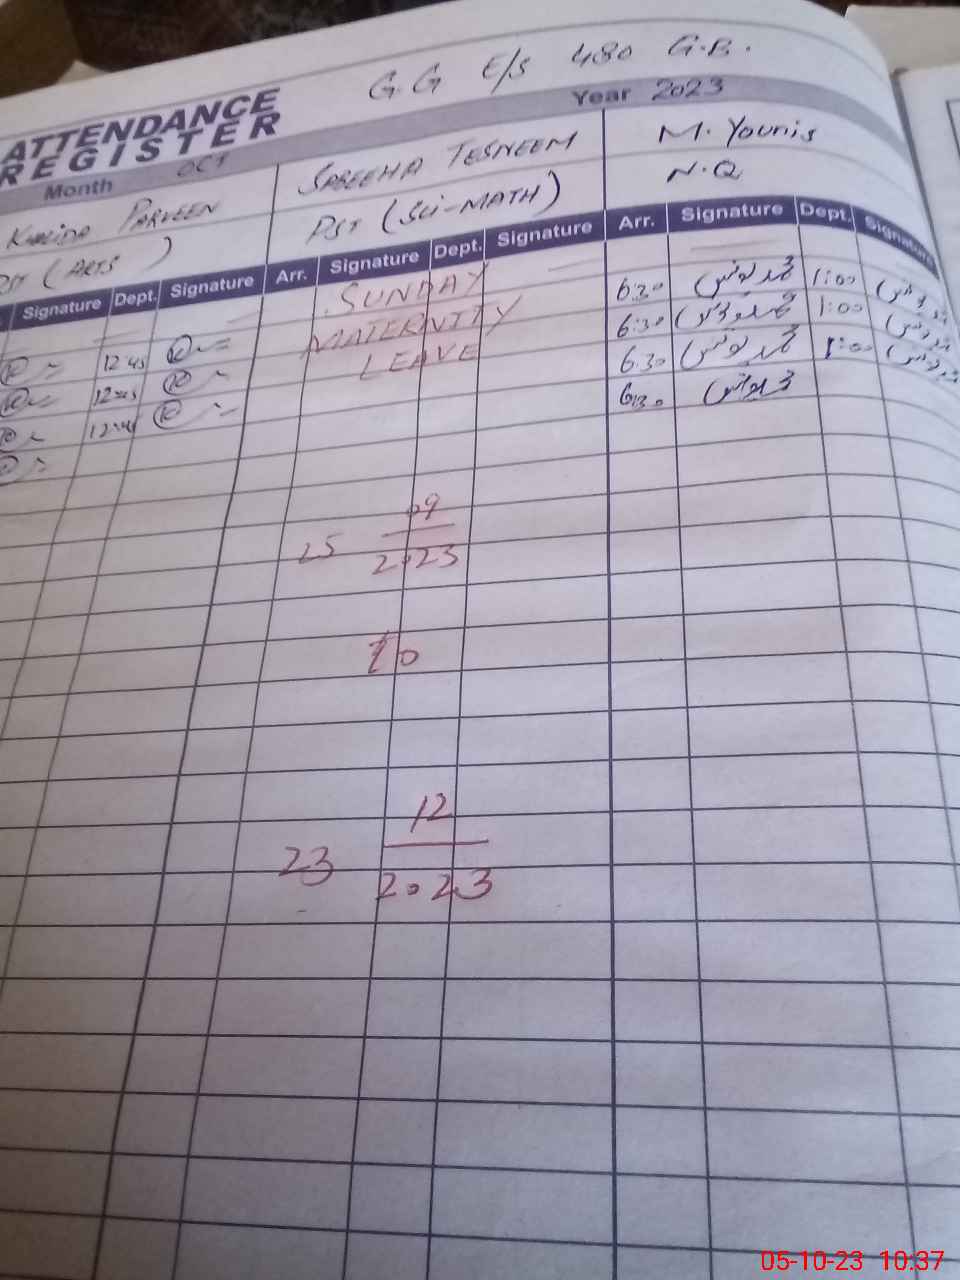 G.G E/S 480 G.B.
ATTENDANCE
REGISTER
Year 2023
Month OCT
PARVEEN
SABEEHA TESNEEM
M. Younis
(ARTS)
PST (Sci-MATH)
N.Q
Signature Dept. Signature Arr. Signature Dept. Signature Arr. Signature Dept. Signature
SUNDAY
12:45 MATERNITY 6:30 محمد یونس 1:00
12:45 LEAVE 6:30 محمد یونس 1:00
12:45 6:30 محمد یونس 1:00
6:30 محمد یونس
25 09
2023
To
23 12
2023
05-10-23 10:37